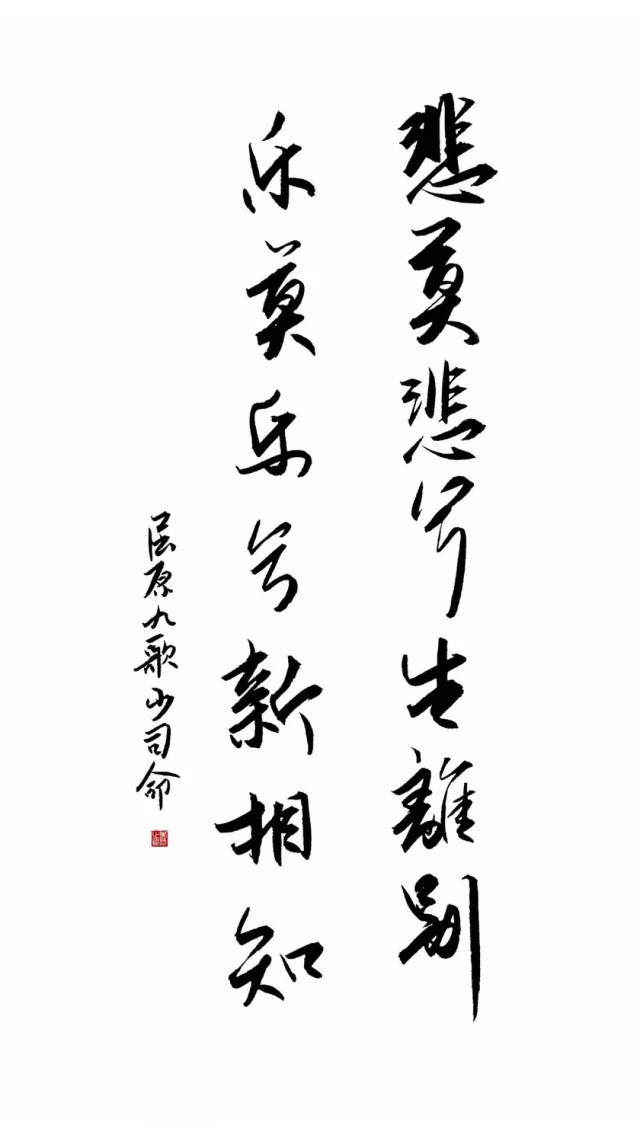 悲莫悲兮生離别
乐莫乐兮新相知
屈原九歌少司命